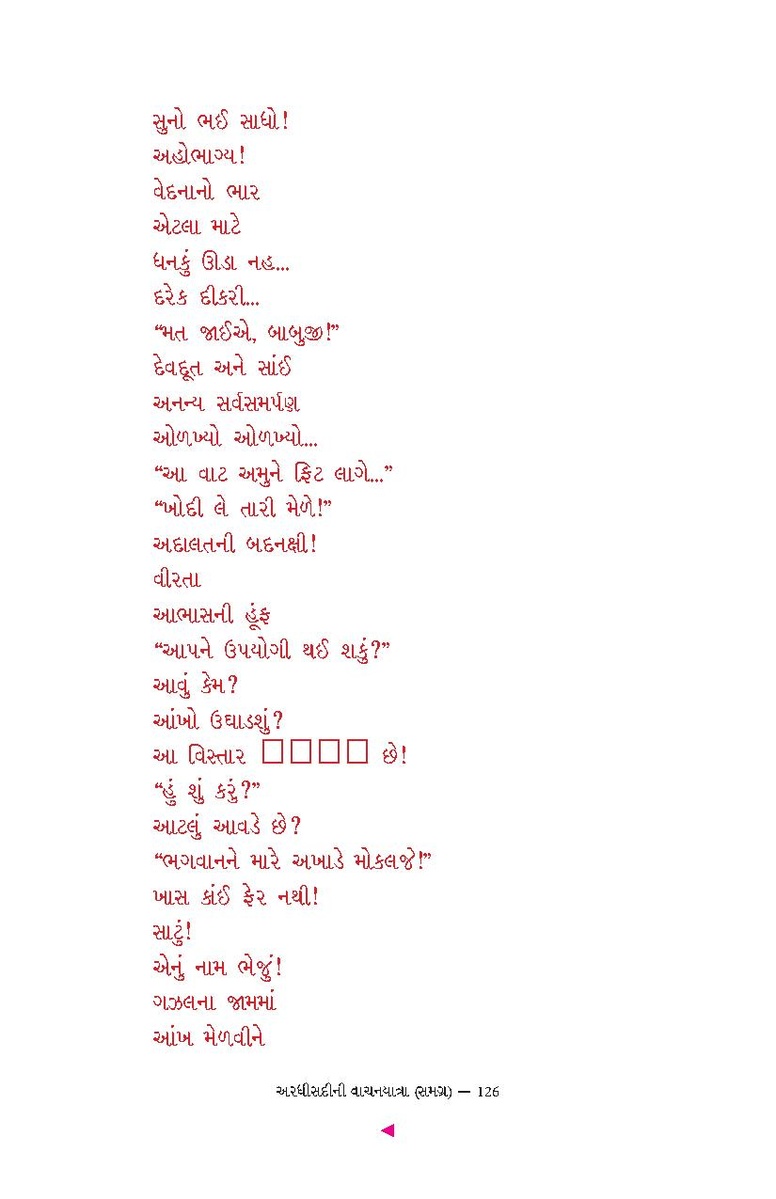 સુનો ભઈ સાધો!
અહોભાગ્ય!
વેદનાનો ભાર
એટલા માટે
ધનકું ઊંડા નહ...
દરેક દીકરી...
“મત જાઈએ, બાબુજી!”
દેવદૂત અને સાંઈ
અનન્ય સર્વસમર્પણ
ઓળખ્યો ઓળખ્યો...
“આ વાટ અમુને ફિટ લાગે...”
“ખોદી લે તારી મેળે!”
અદાલતની બદનક્ષી!
વીરતા
આભાસની હૂંફ
“આપને ઉપયોગી થઈ શકું?”
આવું કેમ?
આંખો ઉઘાડશું?
આ વિસ્તાર □□□□ છે!
“હું શું કરું?”
આટલું આવડે છે?
“ભગવાનને મારે અખાડે મોકલજે!”
ખાસ કાંઈ ફેર નથી!
સાટું!
એનું નામ ભેજું!
ગઝલના જામમાં
આંખ મેળવીને
અરધીસદીની વાચનયાત્રા (સમગ્ર) — 126